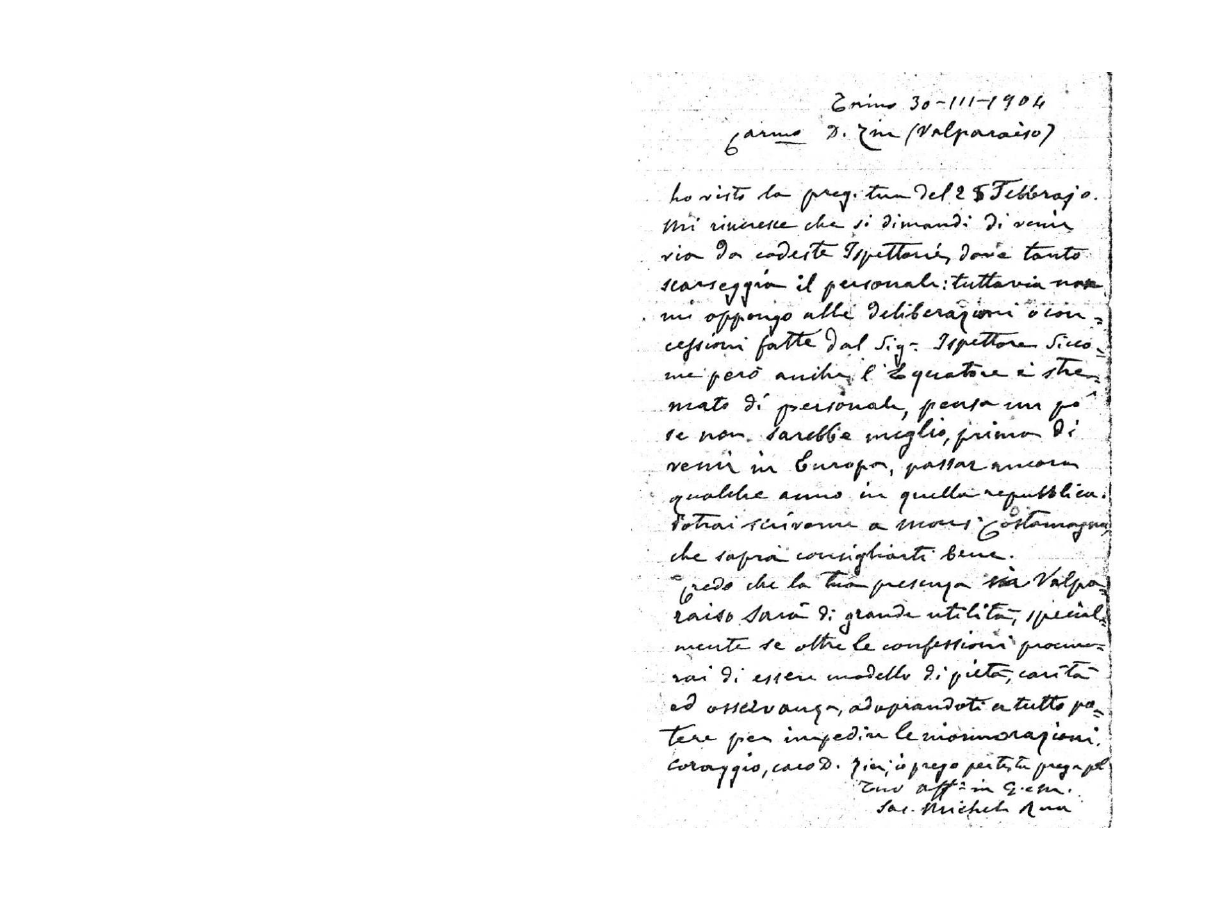 Torino 30-III-1904
Carmo D. Zin (Valparaiso)
ho visto la preg. tua del 25 Febbrajo.
Mi rincresce che si dimandi di venir
via da codeste Ispettorie, dove tanto
scarseggia il personale: tuttavia non
mi oppongo alle deliberazioni o con=
cessioni fatte dal Sigr. Ispettore. Sicco=
me però anche l'Equatore è stre=
mato di personale, pensa un po'
se non sarebbe meglio, prima di
venir in Europa, passar ancora
qualche anno in quella repubblica.
Potrai scriverne a mons. Costamagna,
che saprà consigliarti bene.
Credo che la tua presenza in Valpa=
raiso sarà di grande utilità, special=
mente se oltre le confessioni procure=
rai di essere modello di pietà, carità
ed osservanza, adoprandoti a tutto po=
tere per impedire le mormorazioni.
Coraggio, caro D. Zin; io prego per te, tu prega pel
Tuo aff. in G. e M.
Sac. Michele Rua